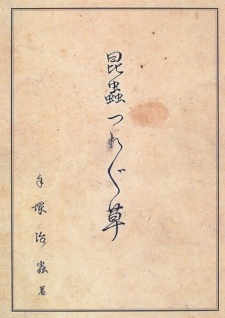 昆蟲つれ〴〵草
手塚治蟲 著